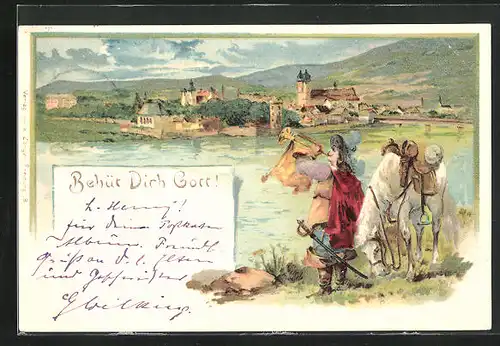 Behüt Dich Gott!
L. Henny!
für deine Postkarten
Album. Freundl.
Gruß an d. l. Eltern
und Geschwister